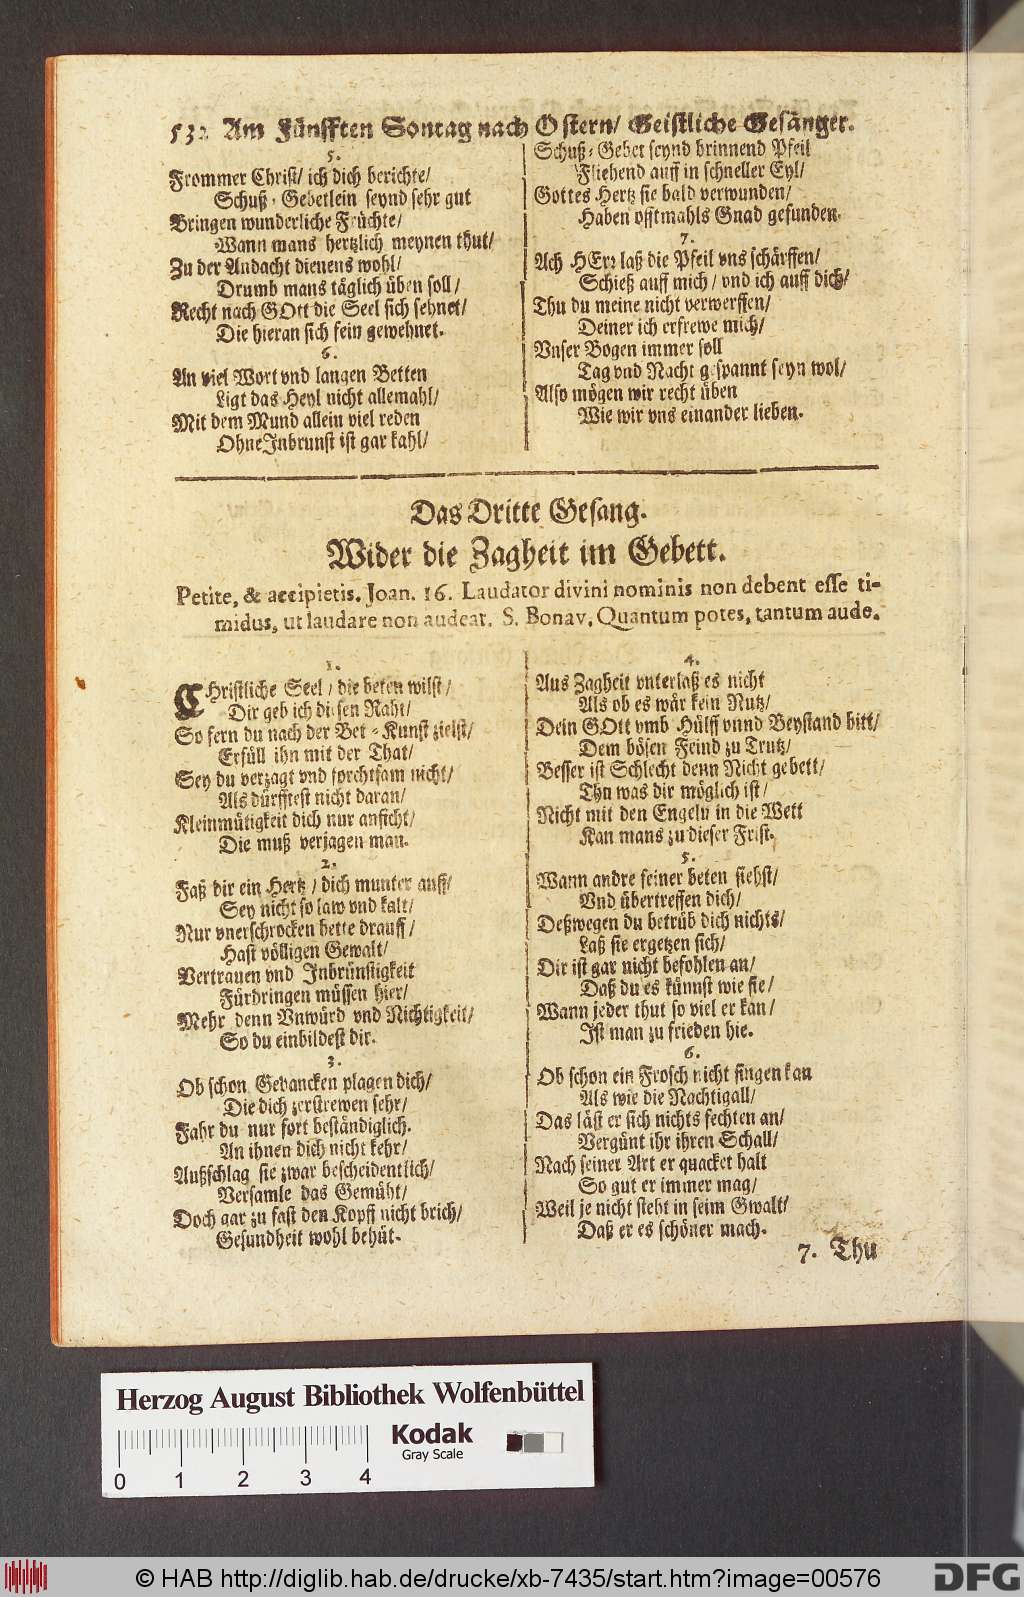 532 Am Fünfften Sontag nach Ostern/ Geistliche Gesänger.
5.
Frommer Christ/ ich dich berichte/
Schuß-Gebetlein seynd sehr gut
Bringen wunderliche Früchte/
Wann mans hertzlich meynen thut/
Zu der Andacht dienens wohl/
Drumb mans täglich üben soll/
Recht nach GOtt die Seel sich sehnet/
Die hieran sich fein gewehnet.
6.
An viel Wort vnd langen Betten
Ligt das Heyl nicht allemahl/
Mit dem Mund allein viel reden
Ohne Inbrunst ist gar kahl/
Schuß-Gebet seynd brinnend Pfeil
Fliehend auff in schneller Eyl/
Gottes Hertz sie bald verwunden/
Haben offtmahls Gnad gefunden.
7.
Ach HErr laß die Pfeil vns schärffen/
Schieß auff mich/ vnd ich auff dich/
Thu du meine nicht verwerffen/
Deiner ich erfrewe mich/
Vnser Bogen immer soll
Tag vnd Nacht gespannt seyn wol/
Also mögen wir recht üben
Wie wir vns einander lieben.
Das Dritte Gesang.
Wider die Zagheit im Gebett.
Petite, & accipietis. Joan. 16. Laudator divini nominis non debent esse ti-
midus, ut laudare non audeat. S. Bonav. Quantum potes, tantum aude.
1.
CHristliche Seel/ die beten wilst/
Dir geb ich diesen Raht/
So fern du nach der Bet-Kunst zielst/
Erfüll ihn mit der That/
Sey du verzagt vnd forchtsam nicht/
Als dürfftest nicht daran/
Kleinmütigkeit dich nur anficht/
Die muß verjagen man.
2.
Faß dir ein Hertz/ dich munter auff/
Sey nicht so law vnd kalt/
Nur vnerschrocken bette drauff/
Hast völligen Gewalt/
Vertrauen vnd Inbrünstigkeit
Fürdringen müssen hier/
Mehr denn Vnwürd vnd Nichtigkeit/
So du einbildest dir.
3.
Ob schon Gedancken plagen dich/
Die dich zerstrewen sehr/
Fahr du nur fort beständiglich.
An ihnen dich nicht kehr/
Außschlag sie zwar bescheidentlich/
Versamle das Gemüht/
Doch gar zu fast den Kopff nicht brich/
Gesundheit wohl behüt.
4.
Aus Zagheit vnterlaß es nicht
Als ob es wär kein Nutz/
Dein GOtt vmb Hülff vnnd Beystand bitt/
Dem bösen Feind zu Trutz/
Besser ist Schlecht denn Nicht gebett/
Thu was dir möglich ist/
Nicht mit den Engeln in die Wett
Kan mans zu dieser Frist.
5.
Wann andre feiner beten siehst/
Vnd übertreffen dich/
Deßwegen du betrüb dich nichts/
Laß sie ergetzen sich/
Dir ist gar nicht befohlen an/
Daß du es künnst wie sie/
Wann jeder thut so viel er kan/
Ist man zu frieden hie.
6.
Ob schon ein Frosch nicht singen kan
Als wie die Nachtigall/
Das läst er sich nichts fechten an/
Vergünt ihr ihren Schall/
Nach seiner Art er quacket halt
So gut er immer mag/
Weil je nicht steht in seim Gwalt/
Daß er es schöner mach.
7. Thu
Herzog August Bibliothek Wolfenbüttel
Kodak
Gray Scale
0 1 2 3 4
© HAB http://diglib.hab.de/drucke/xb-7435/start.htm?image=00576
DFG